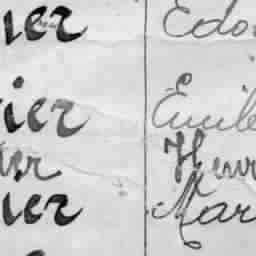 ner Edo
ier Emile
er Henr
ier Mar